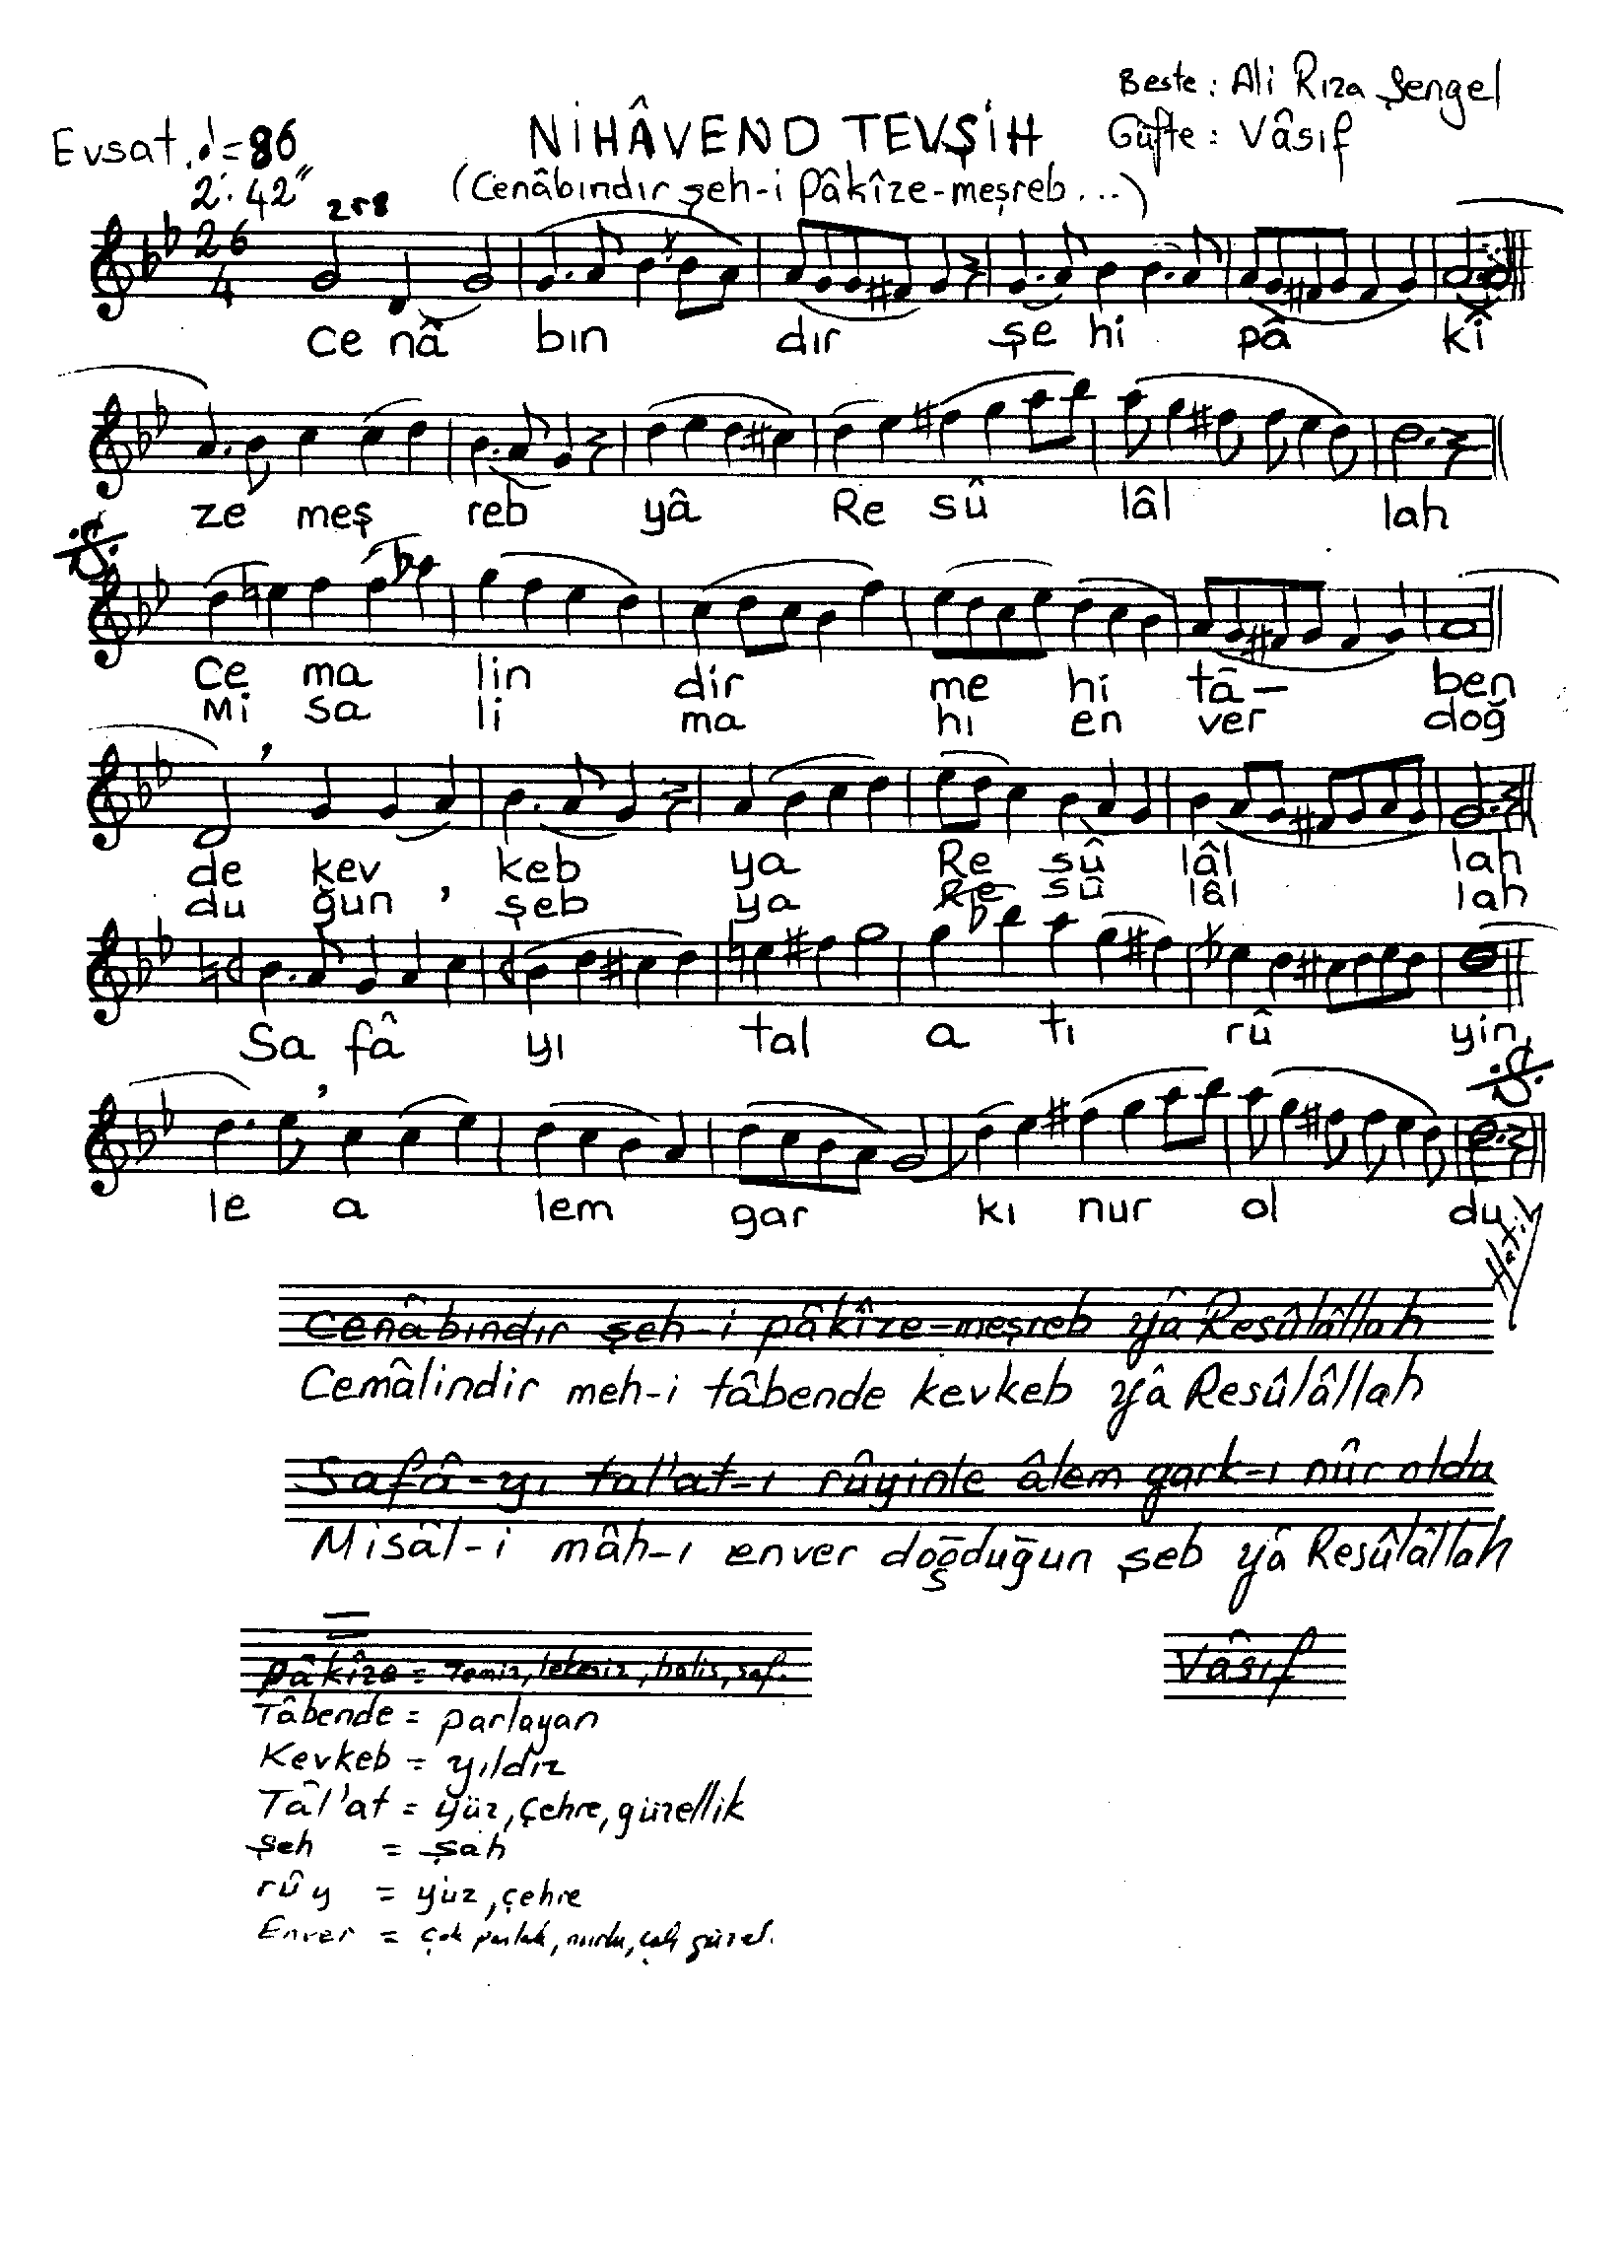 Beste : Ali Rıza Şengel
NİHÂVEND TEVŞİH
Güfte : Vâsıf
Evsat, ♩= 86
2'. 42''
(Cenâbındır şeh-i pâkîze-meşreb...)
26
4
Ce nâ bın dır şe hi pâ kî
ze meş reb yâ Re sû lâl lah
Ce ma lin dir me hi tâ— ben
Mi sa li ma hı en ver doğ
de kev keb ya Re sû lâl lah
du ğun , şeb ya Re sû lâl lah
Sa fâ yı tal a tı rû yin
le a lem gar kı nur ol du
Cenâbındır şeh-i pâkîze-meşreb yâ Resûlâllah
Cemâlindir meh-i tâbende kevkeb yâ Resûlâllah
Safâ-yı tal'at-ı rûyinle âlem gark-ı nûr oldu
Misâl-i mâh-ı enver doğduğun şeb yâ Resûlâllah
Vâsıf
Pâkîze = Temiz, lekesiz, halis, saf.
Tâbende = parlayan
Kevkeb = yıldız
Tâl'at = yüz, çehre, güzellik
Şeh = Şah
rûy = yüz, çehre
Enver = çok parlak, nurlu, çok güzel.